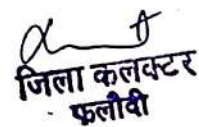 जिला कलक्टर
फलोदी